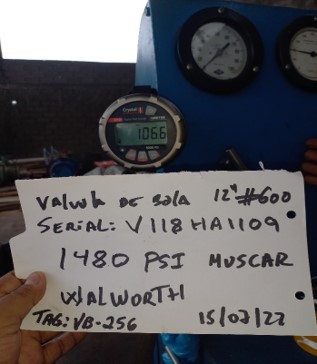 1066
VALVULA DE BOLA 12" #600
SERIAL: V118HA1109
1480 PSI MUSCAR
WALWORTH
TAG: VB-256 15/07/22